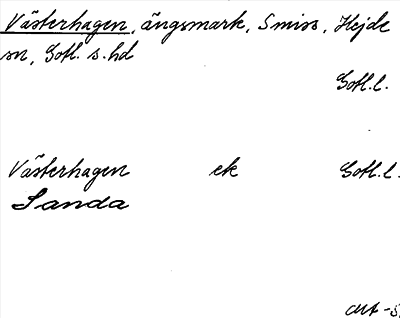 Västerhagen, ängsmark, Smiss, Hejde
sn, Gotl. s. hd
Gotl. l.
Västerhagen ek Gotl. l.
Sanda